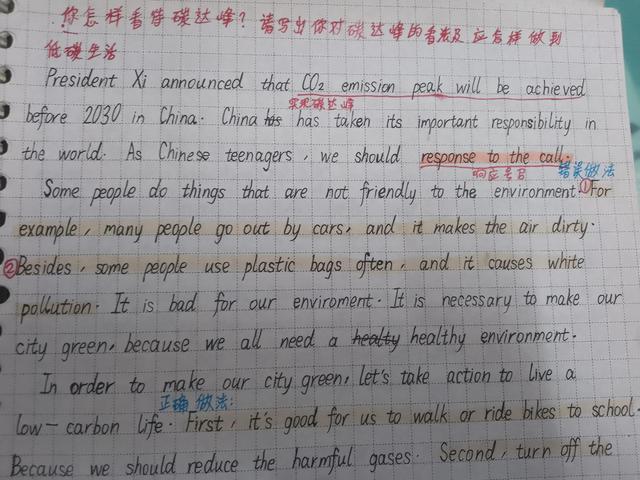 你怎样看待碳达峰？请写出你对碳达峰的看法及应怎样做到
低碳生活
President Xi announced that CO2 emission peak will be achieved
实现碳达峰
before 2030 in China. China has has taken its important responsibility in
the world. As Chinese teenagers, we should response to the call.
响应号召 错误做法
Some people do things that are not friendly to the environment. ①For
example, many people go out by cars, and it makes the air dirty.
②Besides, some people use plastic bags often, and it causes white
pollution. It is bad for our enviroment. It is necessary to make our
city green, because we all need a healty healthy environment.
In order to make our city green, let's take action to live a
正确做法:
low-carbon life. First, it's good for us to walk or ride bikes to school.
Because we should reduce the harmful gases. Second, turn off the